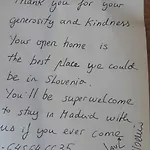 Thank you for your
generosity and kindness
Your open home is
the best place we could
be in Slovenia.
You'll be superwelcome
to stay in Madrid with
us if you ever come